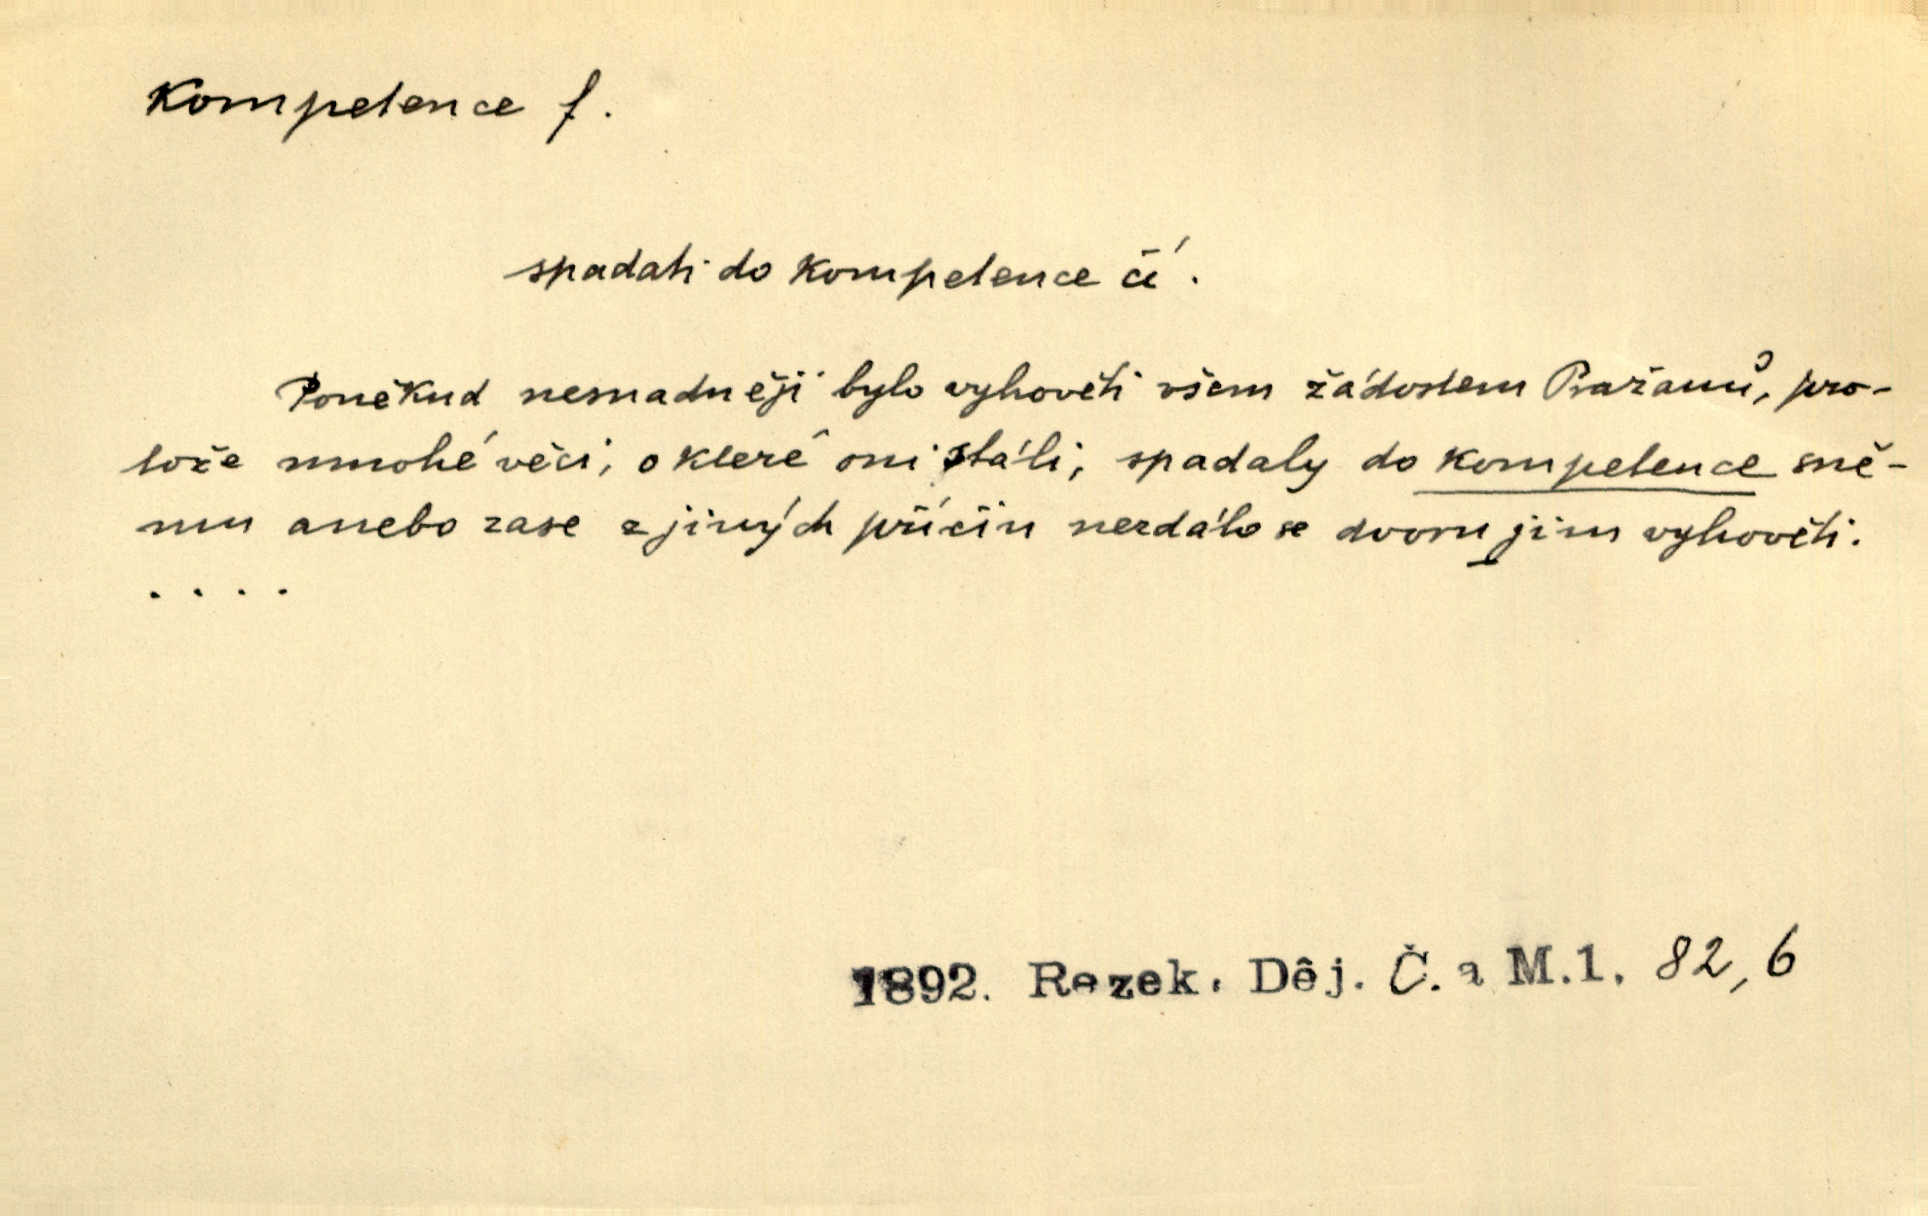 Kompetence f.
spadati do kompetence čí.
Poněkud nesnadněji bylo vyhověti všem žádostem Pražanů, pro-
tože mnohé věci, o které oni stáli, spadaly do kompetence sně-
mu anebo zase z jiných příčin nezdálo se dvoru jim vyhověti.
....
1892. Rezek. Děj. Č. a M.1. 82,6